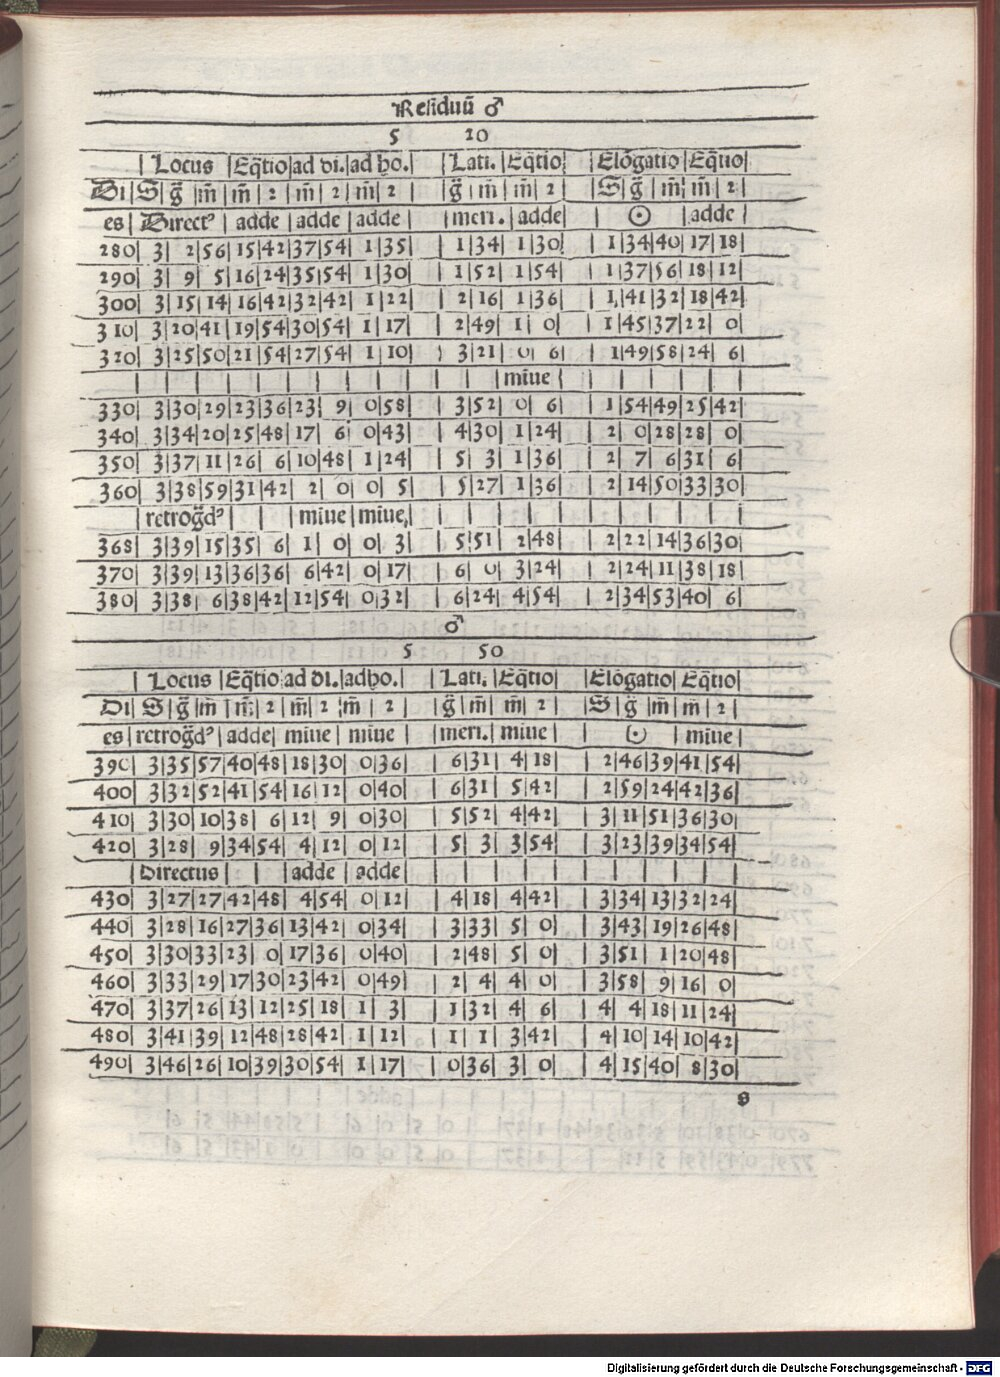 Residuū ♂
5 20
| Locus |Eq̄tio|ad di.|ad ho. | Lati. | Eq̄tio | Elōgatio | Eq̄tio|
Di|S|g̃|m̃|m̃|2|m̃|2|m̃|2| |g̃|m̃|m̃|2| |S|g̃|m̃|m̃|2|
es| Directꝰ | adde | adde | adde | | meri. | adde | | ☉ | adde |
280| 3| 2|56|15|42|37|54| 1|35| | 1|34| 1|30| | 1|34|40|17|18|
290| 3| 9| 5|16|24|35|54| 1|30| | 1|52| 1|54| | 1|37|56|18|12|
300| 3|15|14|16|42|32|42| 1|22| | 2|16| 1|36| | 1|41|32|18|42|
310| 3|20|41|19|54|30|54| 1|17| | 2|49| 1| 0| | 1|45|37|22| 0|
320| 3|25|50|21|54|27|54| 1|10| | 3|21| 0| 6| | 1|49|58|24| 6|
| miue |
330| 3|30|29|23|36|23| 9| 0|58| | 3|52| 0| 6| | 1|54|49|25|42|
340| 3|34|20|25|48|17| 6| 0|43| | 4|30| 1|24| | 2| 0|28|28| 0|
350| 3|37|11|26| 6|10|48| 1|24| | 5| 3| 1|36| | 2| 7| 6|31| 6|
360| 3|38|59|31|42| 2| 0| 0| 5| | 5|27| 1|36| | 2|14|50|33|30|
| retrog̃dꝰ | | | miue | miue |
368| 3|39|15|35| 6| 1| 0| 0| 3| | 5|51| 2|48| | 2|22|14|36|30|
370| 3|39|13|36|36| 6|42| 0|17| | 6| 0| 3|24| | 2|24|11|38|18|
380| 3|38| 6|38|42|12|54| 0|32| | 6|24| 4|54| | 2|34|53|40| 6|
♂
5 50
| Locus |Eq̄tio|ad di.|ad ho. | Lati. | Eq̄tio | Elōgatio | Eq̄tio|
Di|S|g̃|m̃|m̃|2|m̃|2|m̃|2| |g̃|m̃|m̃|2| |S|g̃|m̃|m̃|2|
es| retrog̃dꝰ | adde | miue | miue | | meri. | miue | | ☉ | miue |
390| 3|35|57|40|48|18|30| 0|36| | 6|31| 4|18| | 2|46|39|41|54|
400| 3|32|52|41|54|16|12| 0|40| | 6|31| 5|42| | 2|59|24|42|36|
410| 3|30|10|38| 6|12| 9| 0|30| | 5|52| 4|42| | 3|11|51|36|30|
420| 3|28| 9|34|54| 4|12| 0|12| | 5| 3| 3|54| | 3|23|39|34|54|
| Directus | | | adde | adde |
430| 3|27|27|42|48| 4|54| 0|12| | 4|18| 4|42| | 3|34|13|32|24|
440| 3|28|16|27|36|13|42| 0|34| | 3|33| 5| 0| | 3|43|19|26|48|
450| 3|30|33|23| 0|17|36| 0|40| | 2|48| 5| 0| | 3|51| 1|20|48|
460| 3|33|29|17|30|23|42| 0|49| | 2| 4| 4| 0| | 3|58| 9|16| 0|
470| 3|37|26|13|12|25|18| 1| 3| | 1|32| 4| 6| | 4| 4|18|11|24|
480| 3|41|39|12|48|28|42| 1|12| | 1| 1| 3|42| | 4|10|14|10|42|
490| 3|46|26|10|39|30|54| 1|17| | 0|36| 3| 0| | 4|15|40| 8|30|
Digitalisierung gefördert durch die Deutsche Forschungsgemeinschaft - DFG